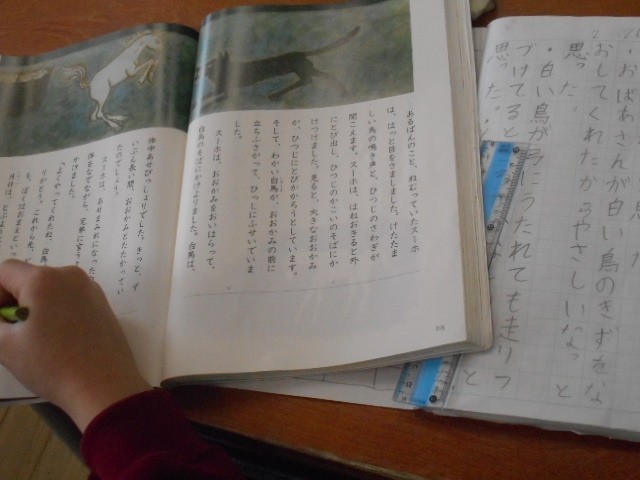 ・おばあさんが白い鳥のきずをな
おしてくれたからやさしいなっと
思った。
・白い鳥が弓にうたれても走りつ
づけてると
思った。
あるばんのこと、ねむっていたスーホ
は、はっと目をさましました。けたたま
しい馬の鳴き声と、ひつじのさわぎが
聞こえます。スーホは、はねおきると外
にとび出し、ひつじのかこいのそばにか
けつけました。見ると、大きなおおかみ
が、ひつじにとびかかろうとしています。
そして、わかい白馬が、おおかみの前に
立ちふさがって、ひっしにふせいでいま
した。
スーホは、おおかみをおいはらって、
白馬のそばにかけよりました。白馬は、
体中あせびっしょりでした。きっと、ず
いぶん長い間、おおかみとたたかってい
たのでしょう。
スーホは、あせまみれになった
体をなでながら、兄弟に言うよ
かけました。
「よくやってくれたね、白馬
りがとう。これから先、
も、ぼくはおまえと
月日は、とぶよう